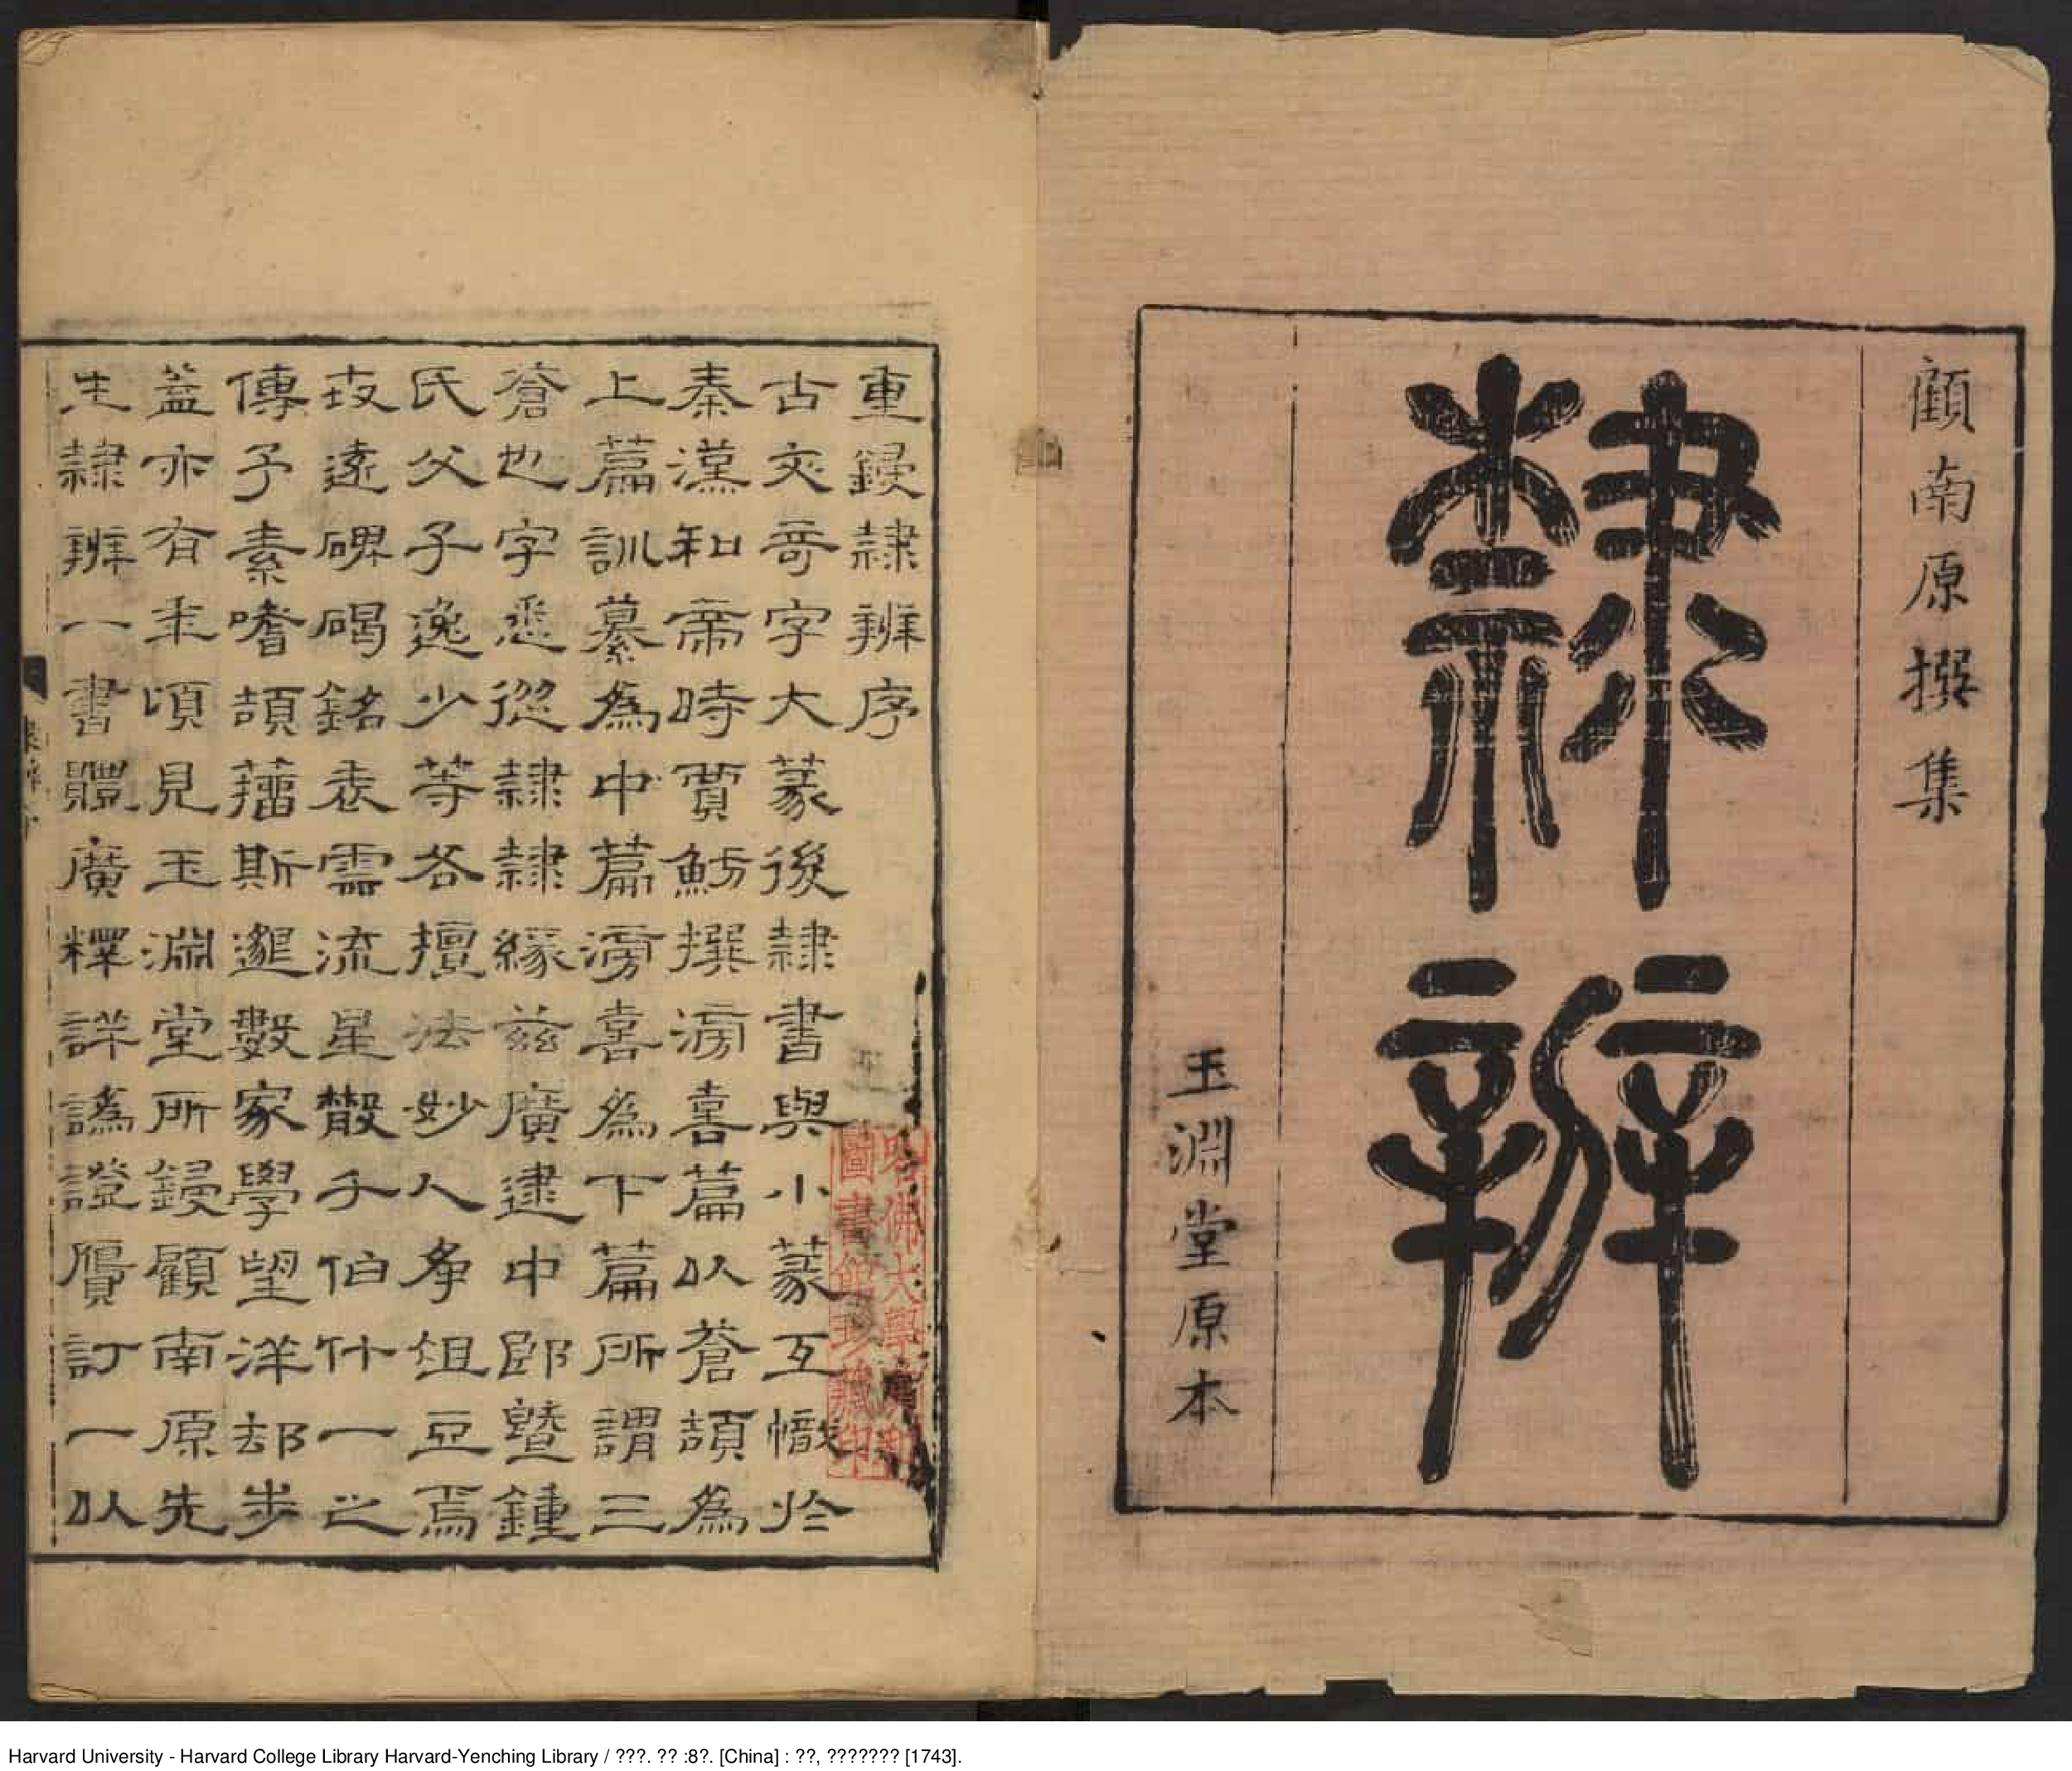 顧南原撰集
隸辨
玉淵堂原本
重鋟隸辨序
古文奇字大篆後隸書與小篆互幟於
秦漢和帝時賈魴撰滂喜篇以蒼頡為
上篇訓纂為中篇滂喜為下篇所謂三
蒼也字悉從隸隸緣茲廣逮中郎暨鍾
氏父子逸少等各擅法妙人爭俎豆焉
遠碑碣銘表流星散千伯什一之
傳予素嗜頡籒斯邈數家學望洋却步
蓋亦有年頃見玉淵堂所鋟顧南原先
生隸辨一書體廣釋詳譌證贋訂一以
哈佛大學漢和
圖書館珍藏印
Harvard University - Harvard College Library Harvard-Yenching Library / ???. ?? :8?. [China] : ??, ??????? [1743].